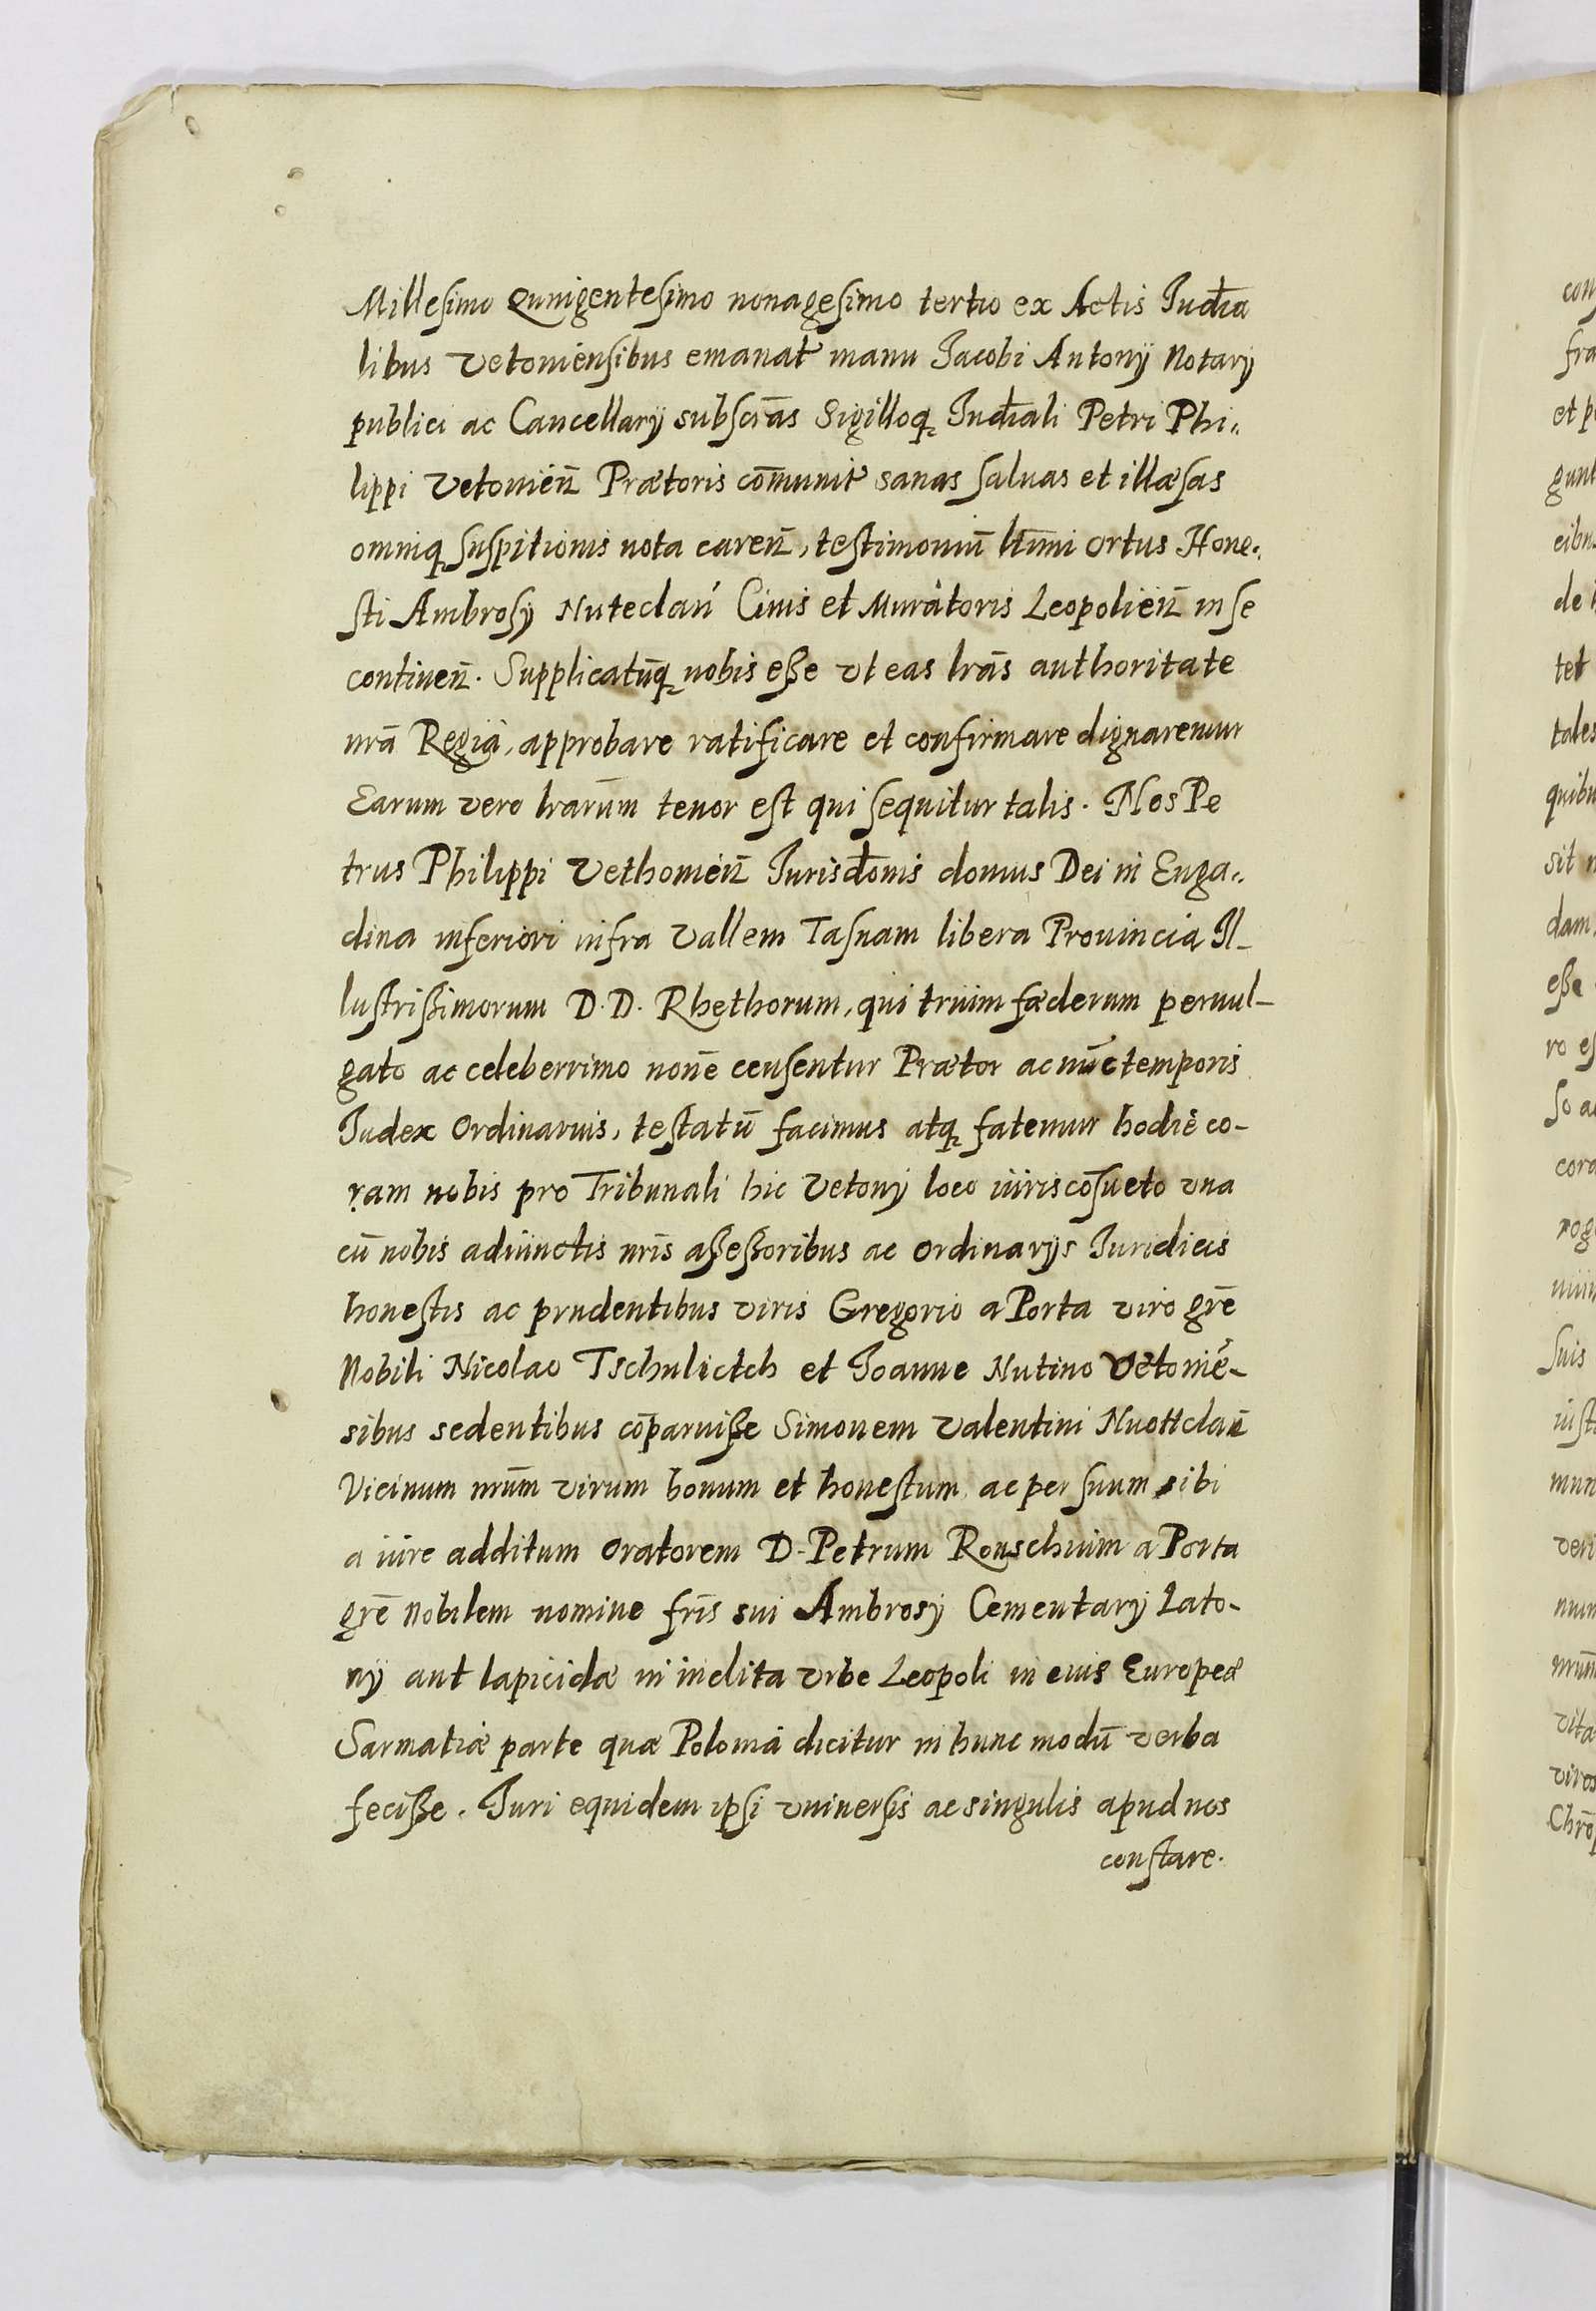 Millesimo Quingentesimo nonagesimo tertio ex Actis Judīa
libus Vetoniensibus emanat̃ manu Jacobi Antonÿ Notarÿ
publici ac Cancellarÿ subscr̄as Sigilloq̨ Jud̄iali Petri Phi„
lippi Vetonien̄ Prætoris com̄unit̃ sanas saluas et illæsas
omniq̨ suspitionis nota caren̄, testimoniū ltīmi ortus Hone„
sti Ambrosÿ Nuteclaú Ciuis et Muràtoris Leopolien̄ in se
continen̄. Supplicatūq̨ nobis eße vt eas lrās authoritate
nrā Regià, approbare ratificare et confirmare dignaremur
Earum vero lrarūm tenor est qui sequitur talis. Nos Pe
trus Philippi Vethonien̄ Jurisd̄onis domus Dei in Enga„
dina inferiori infra Vallem Tasnam libera Prouincia Il-
lustrißimorum D.D. Rhethorum, qui trium fæderum peruul-
gato ac celeberrimo nōne censentur Prætor ac nūc temporis
Judex Ordinarius, testatū facimus atq̨ fatemur hodiè co-
ram nobis pro Tribunali hic Vetonÿ loco iuris cōsueto vna
cū nobis adiunctis nrīs aßeßoribus ac Ordinarÿs Juridicis
honestis ac prudentibus viris Gregorio a Porta viro grē
Nobili Nicolao Tschulictch et Joanne Nutino Vetoniē-
sibus sedentibus cōparuiße Simonem Valentini Nuottclaū
Vicinum nrūm virum bonum et honestum ac per suum sibi
a iure additum Oratorem D. Petrum Rouschium a Porta
grē Nobilem nomine frīs sui Ambrosÿ Cementarÿ Lato-
nÿ aut lapicidæ in inclita Vrbe Leopoli in eius Europeæ
Sarmatiæ parte quæ Polonia dicitur in hunc modū verba
feciße. Juri equidem ipsi vniuersis ac singulis apud nos
constare.